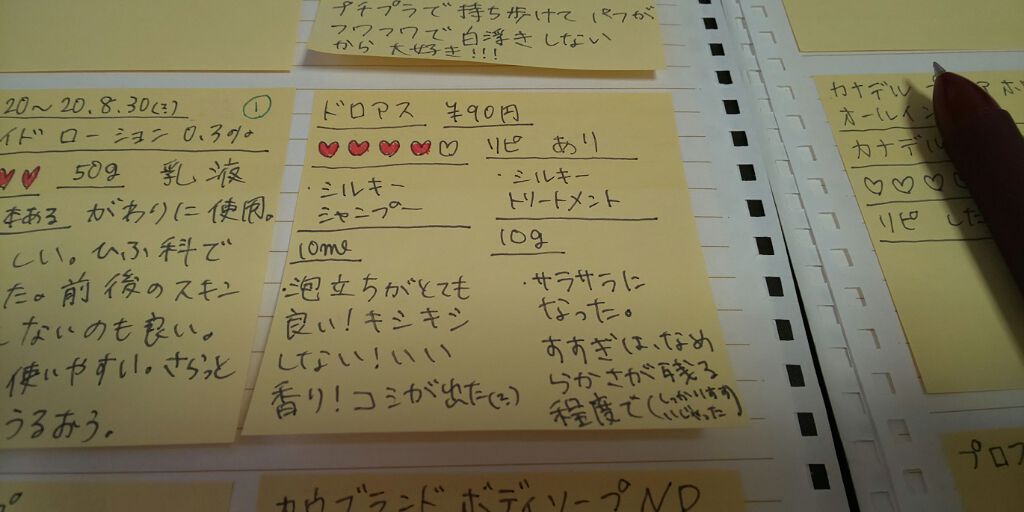 プチプラで持ち歩けて パフが
フワフワで白浮きしない
から 大好き!!!
20～20.8.30(ミ) ①
イドローション 0.3%
50g 乳液
本ある がわりに使用。
しい。ひふ科で
た。前後のスキン
しないのも良い。
使いやすい。さらっと
うるおう。
ドロアス ¥90円
リピ あり
・シルキー
シャンプー
10ml
・泡立ちがとても
良い!キシキシ
しない!いい
香り!コシが出た(ミ)
・シルキー
トリートメント
10g
・サラサラに
なった。
すすぎは、なめ
らかさが残る
程度で(しっかりすすいじゃった)
カウブランド ボディソープ ND
カナデル
オールイン
カナデル
リピ した
プロフ